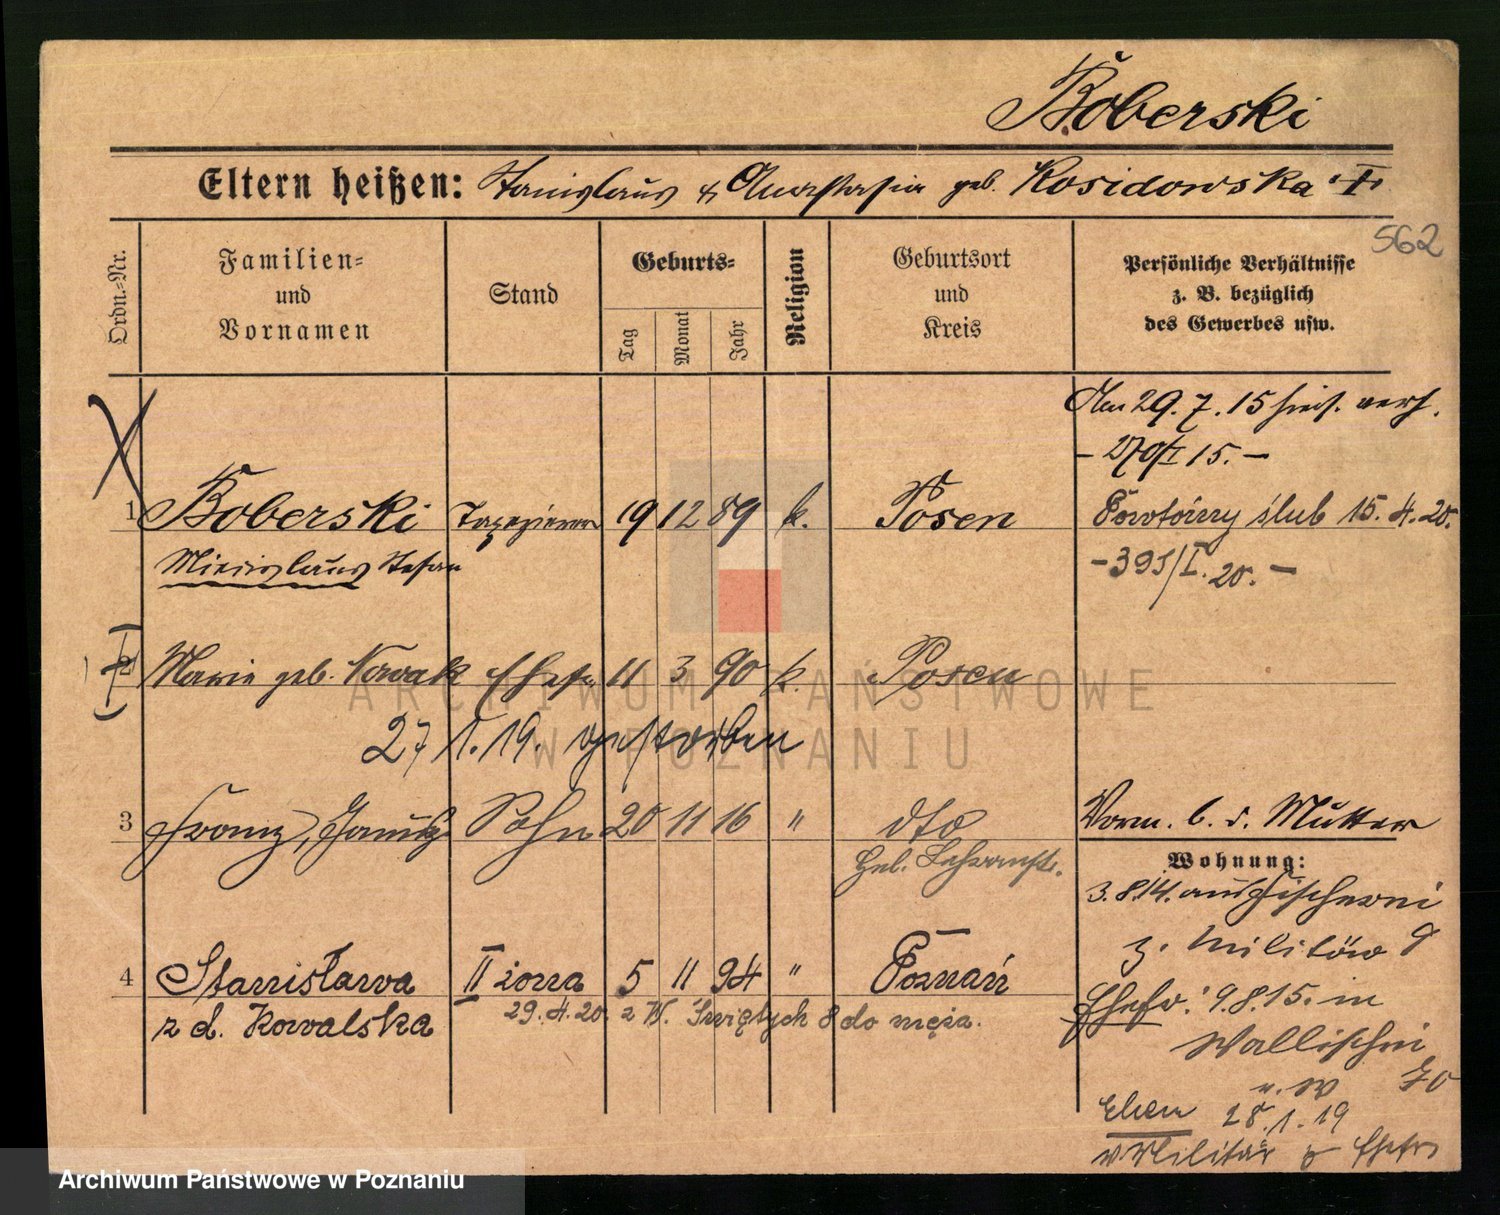 Boberski
Eltern heißen: Stanislaus & Anastasia geb. Kosidowska
562
Ordn.-Nr.
Familien-
und
Vornamen
Stand
Geburts-
Tag
Monat
Jahr
Religion
Geburtsort
und
Kreis
Persönliche Verhältnisse
z. B. bezüglich
des Gewerbes usw.
Am 29.7.15 hies. verh.
15.-
1 Boberski Tapezierer 19 12 89 k. Posen
Powtórny ślub 15.4.20.
Miecislaus Stefan
-395/I.20.-
2 Marie geb. Nowak Ehefr. 11 3 90 k. Posen
27 1.19. gestorben
3 Franz, Sohn 20 11 16 " dto
Vorm. b. d. Mutter
Geb. Lehranst.
Wohnung:
3.8.14. aus Fischerei 9
z. Militär
4 Stanisława II żona 5 11 94 " Poznań
z d. Kowalska
29.4.20. z W. Świętych 8 do męża.
Ehefr: 9.8.15. in
Wallischei 70
28.1.19
v Militär z Ehefr
ARCHIWUM PAŃSTWOWE
W POZNANIU
Archiwum Państwowe w Poznaniu